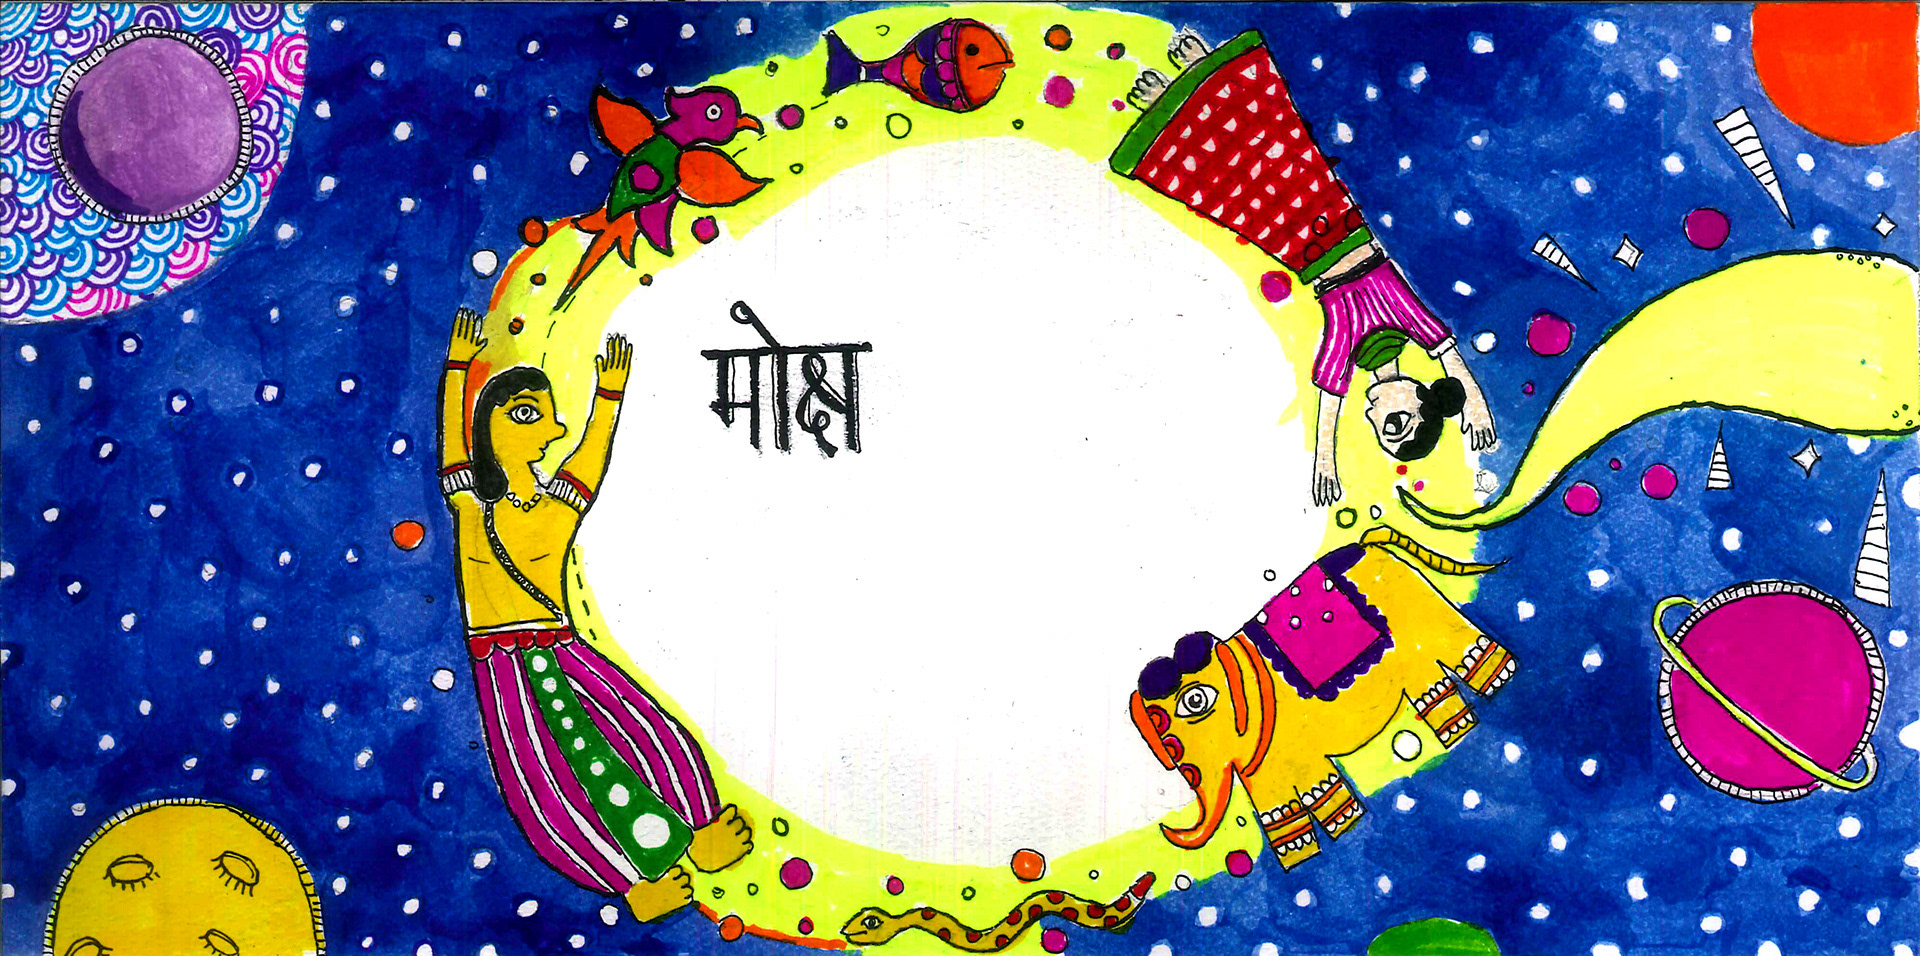 मोक्ष